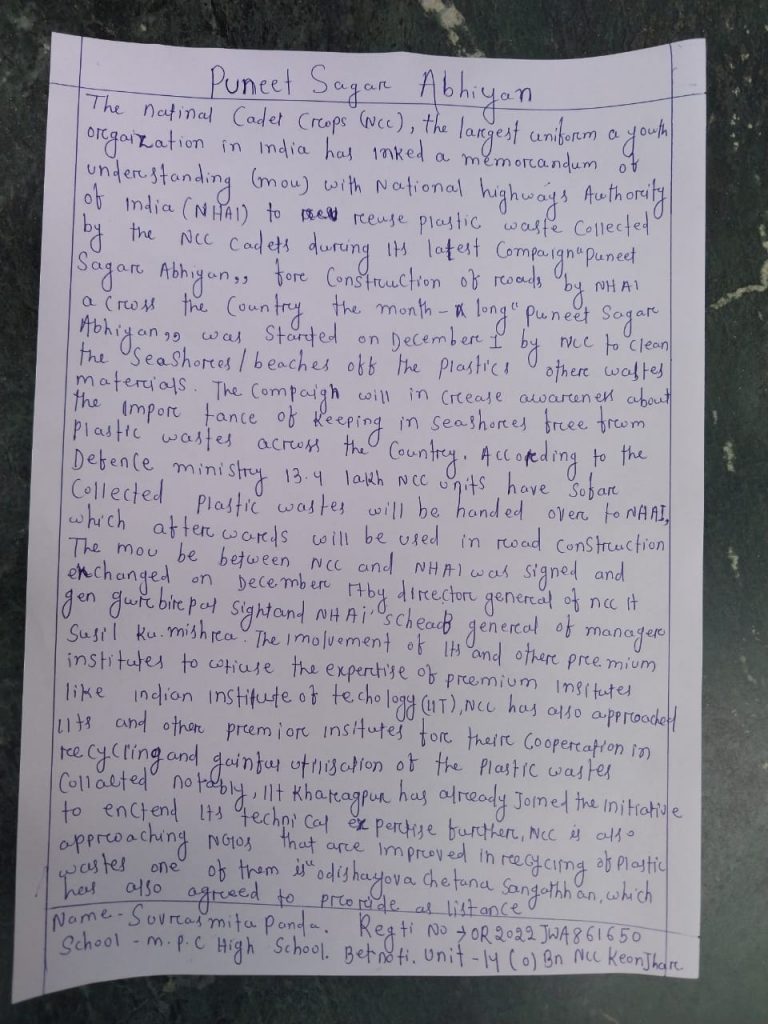 Puneet Sagar Abhiyan
The natinal Cadet Creops (NCC), the largest uniform a youth
orgaization in India has inked a memorandum of
understanding (mou) with National highways Authority
of India (NHAI) to reuse plastic waste Collected
by the NCC Cadets during Its latest Compaign "Puneet
Sagar Abhigan,, for Construction of roads by NHAI
across the Country the month- long" Puneet Sagar
Abhigan,, was Started on December 1 by NCC to clean
the Seashores/beaches off the plastics othere wastes
materials. The Compaigh will in crease awareness about
the Impor tance of Keeping in seashores free from
plastic wastes across the Country. According to the
Defence ministry 13.4 lakh NCC units have Sofar
Collected plastic wastes will be handed over to NAAI,
which after wards will be used in road Construction
The mou be between NCC and NHAI was signed and
exchanged on December 17by director general of ncc It
gen gurbirepal Sightand NHAi's cheads general of manager
Susil Ku. mishra. The imolvement of Its and othere premium
institutes to wtiuse the expertise of premium Insitutes
like indian institute of techology (IIT), NCC has also approached
IITs and other premiore insitutes for their Cooperation in
recycring and gainfur utilisation of the Plastic wastes
Collaeted notably, IIT Kharagpur has already Joined the initiative
to enctend Its technical expertise further, NCC is also
approaching NGOs that are improved in recycing of plastic
wastes one of them is "odishayova Chetana Sangathhan, which
has also agreed to prorude as listance
Name - Suvrasmita Panda. Regti No → OR2022JWA861650
School - m.p.c High School. Betnoti. Unit - 14 (O) Bn NCC Keonjhar